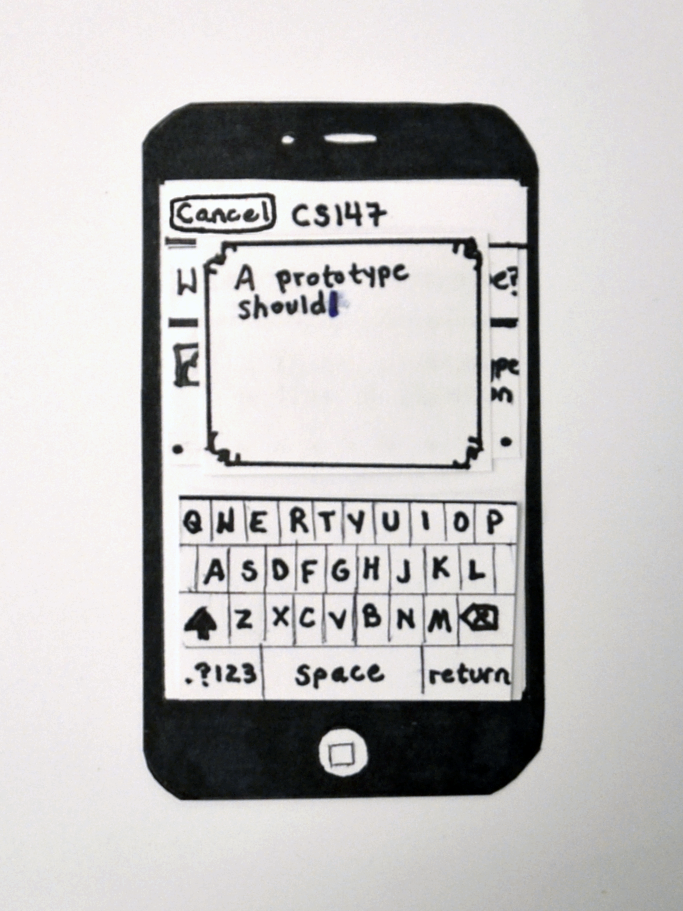 Cancel CS147
A prototype
should
e?
ype
on
Q W E R T Y U I O P
A S D F G H J K L
Z X C V B N M
.?123 space return